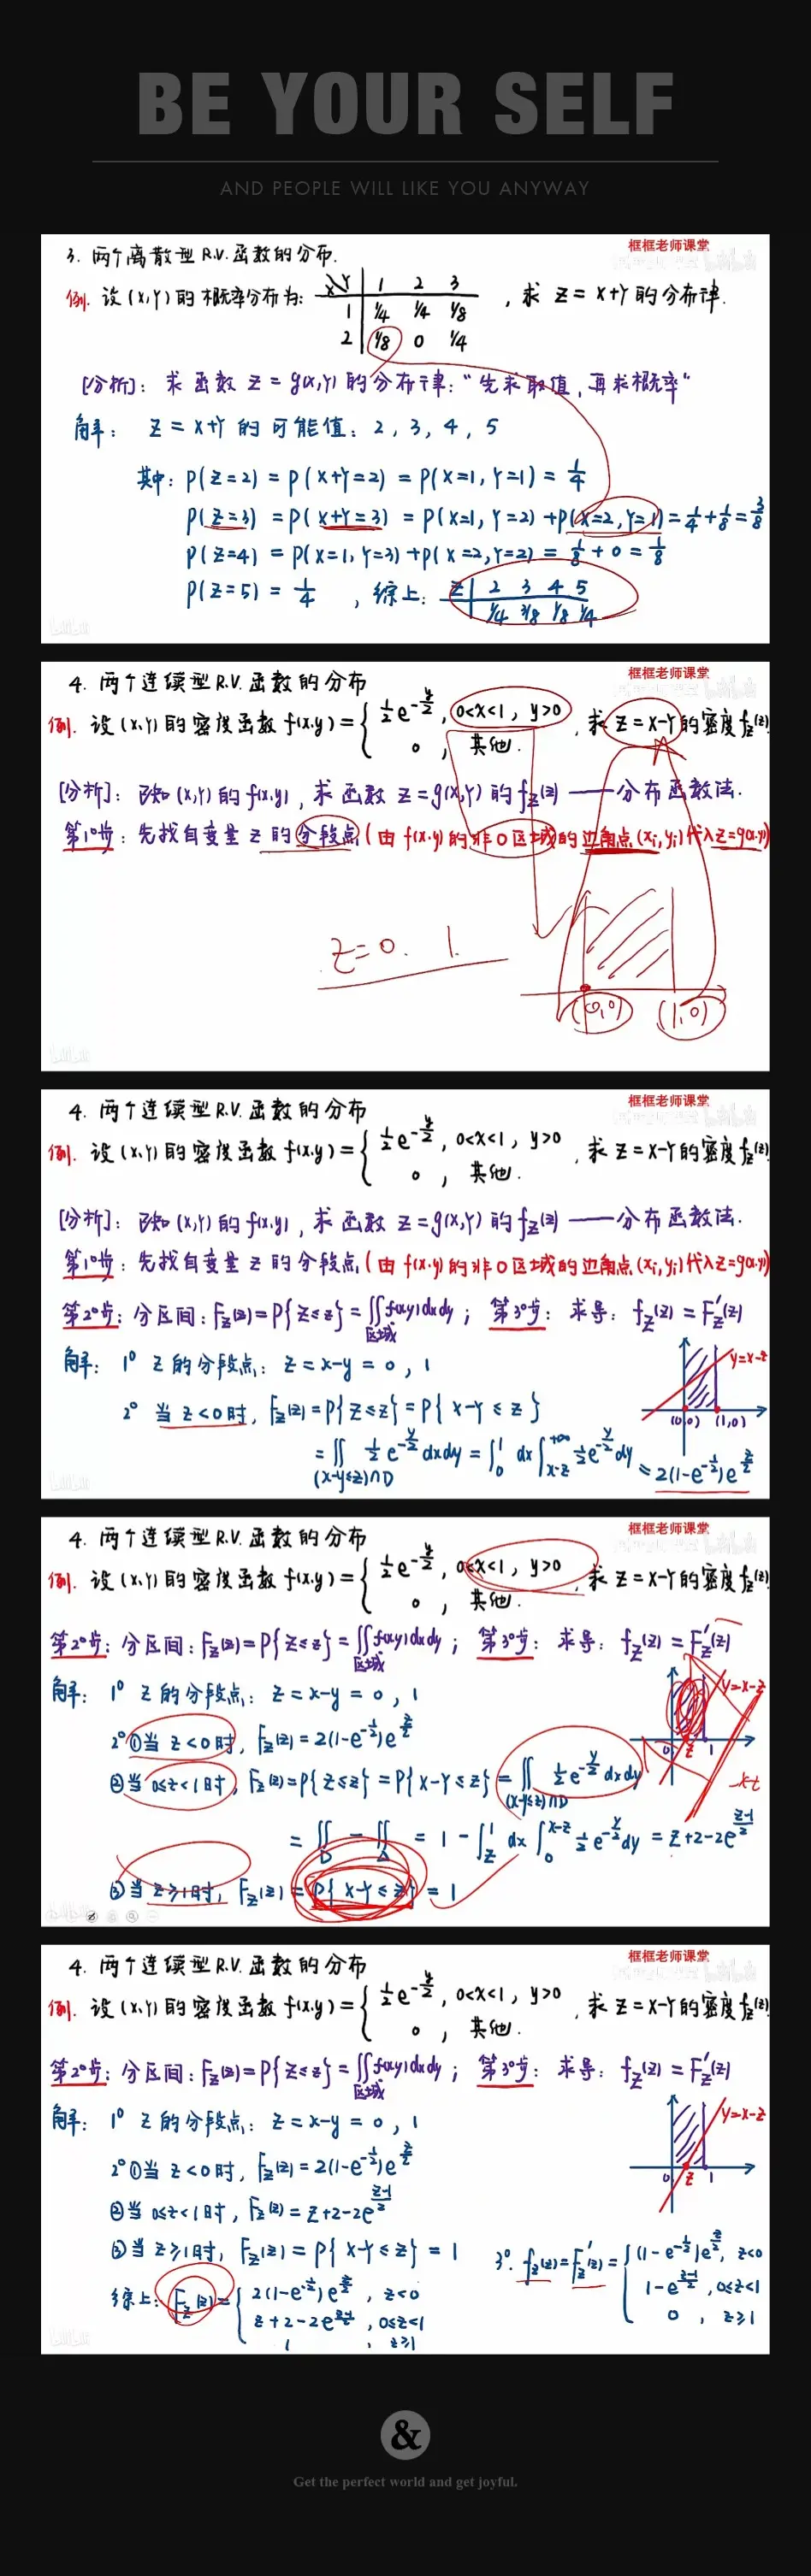 BE YOUR SELF
AND PEOPLE WILL LIKE YOU ANYWAY
框框老师课堂
3. 两个离散型 R.V. 函数的分布.
例. 设 (X,Y) 的概率分布为: , 求 Z = X+Y 的分布律.
X Y | 1 2 3
1 | 1/4 1/4 1/8
2 | 1/8 0 1/4
[分析]: 求函数 Z = g(X,Y) 的分布律: "先求取值, 再求概率"
解: Z = X+Y 的可能值: 2, 3, 4, 5
其中: P(Z=2) = P(X+Y=2) = P(X=1, Y=1) = 1/4
P(Z=3) = P(X+Y=3) = P(X=1, Y=2) + P(X=2, Y=1) = 1/4 + 1/8 = 3/8
P(Z=4) = P(X=1, Y=3) + P(X=2, Y=2) = 1/8 + 0 = 1/8
P(Z=5) = 1/4 , 综上: Z | 2 3 4 5
1/4 3/8 1/8 1/4
bilibili
框框老师课堂
4. 两个连续型 R.V. 函数的分布
例. 设 (X,Y) 的密度函数 f(x,y) = { 1/2 e^{-y/2}, 0<x<1, y>0 , 求 Z = X-Y 的密度 f_Z(z).
0 , 其他.
[分析]: 已知 (X,Y) 的 f(x,y), 求函数 Z = g(X,Y) 的 f_Z(z) —— 分布函数法.
第1°步: 先找自变量 z 的分段点 (由 f(x,y) 的非0区域的边角点 (xi,yi) 代入 z=g(x,y))
z=0. 1
(0,0) (1,0)
bilibili
框框老师课堂
4. 两个连续型 R.V. 函数的分布
例. 设 (X,Y) 的密度函数 f(x,y) = { 1/2 e^{-y/2}, 0<x<1, y>0 , 求 Z = X-Y 的密度 f_Z(z).
0 , 其他.
[分析]: 已知 (X,Y) 的 f(x,y), 求函数 Z = g(X,Y) 的 f_Z(z) —— 分布函数法.
第1°步: 先找自变量 z 的分段点 (由 f(x,y) 的非0区域的边角点 (xi,yi) 代入 z=g(x,y))
第2°步: 分区间: F_Z(z) = P{Z≤z} = ∬区域 f(x,y)dxdy ; 第3°步: 求导: f_Z(z) = F_Z'(z)
解: 1° Z 的分段点: z = x-y = 0, 1
y=x-z
(0,0) (1,0)
2° 当 z<0 时, F_Z(z) = P{Z≤z} = P{X-Y≤z}
= ∬(x-y≤z)∩D 1/2 e^{-y/2} dxdy = ∫_0^1 dx ∫_{x-z}^{+∞} 1/2 e^{-y/2} dy = 2(1-e^{-1/2})e^{z/2}
bilibili
框框老师课堂
4. 两个连续型 R.V. 函数的分布
例. 设 (X,Y) 的密度函数 f(x,y) = { 1/2 e^{-y/2}, 0<x<1, y>0 , 求 Z = X-Y 的密度 f_Z(z).
0 , 其他.
第2°步: 分区间: F_Z(z) = P{Z≤z} = ∬区域 f(x,y)dxdy ; 第3°步: 求导: f_Z(z) = F_Z'(z)
解: 1° Z 的分段点: z = x-y = 0, 1
y=x-z
0 z 1
2° ①当 z<0 时, F_Z(z) = 2(1-e^{-1/2})e^{z/2}
②当 0≤z<1 时, F_Z(z) = P{Z≤z} = P{X-Y≤z} = ∬(x-y≤z)∩D 1/2 e^{-y/2} dxdy
= ∬D - ∬△ = 1 - ∫_z^1 dx ∫_0^{x-z} 1/2 e^{-y/2} dy = z+2-2e^{(z-1)/2}
③当 z≥1 时, F_Z(z) = P{X-Y≤z} = 1
框框老师课堂
4. 两个连续型 R.V. 函数的分布
例. 设 (X,Y) 的密度函数 f(x,y) = { 1/2 e^{-y/2}, 0<x<1, y>0 , 求 Z = X-Y 的密度 f_Z(z).
0 , 其他.
第2°步: 分区间: F_Z(z) = P{Z≤z} = ∬区域 f(x,y)dxdy ; 第3°步: 求导: f_Z(z) = F_Z'(z)
解: 1° Z 的分段点: z = x-y = 0, 1
y=x-z
0 z 1
2° ①当 z<0 时, F_Z(z) = 2(1-e^{-1/2})e^{z/2}
②当 0≤z<1 时, F_Z(z) = z+2-2e^{(z-1)/2}
③当 z≥1 时, F_Z(z) = P{X-Y≤z} = 1
综上: F_Z(z) = { 2(1-e^{-1/2})e^{z/2} , z<0
z+2-2e^{(z-1)/2} , 0≤z<1
1 , z≥1
3°. f_Z(z) = F_Z'(z) = { (1-e^{-1/2})e^{z/2}, z<0
1-e^{(z-1)/2} , 0≤z<1
0 , z≥1
bilibili
&
Get the perfect world and get joyful.